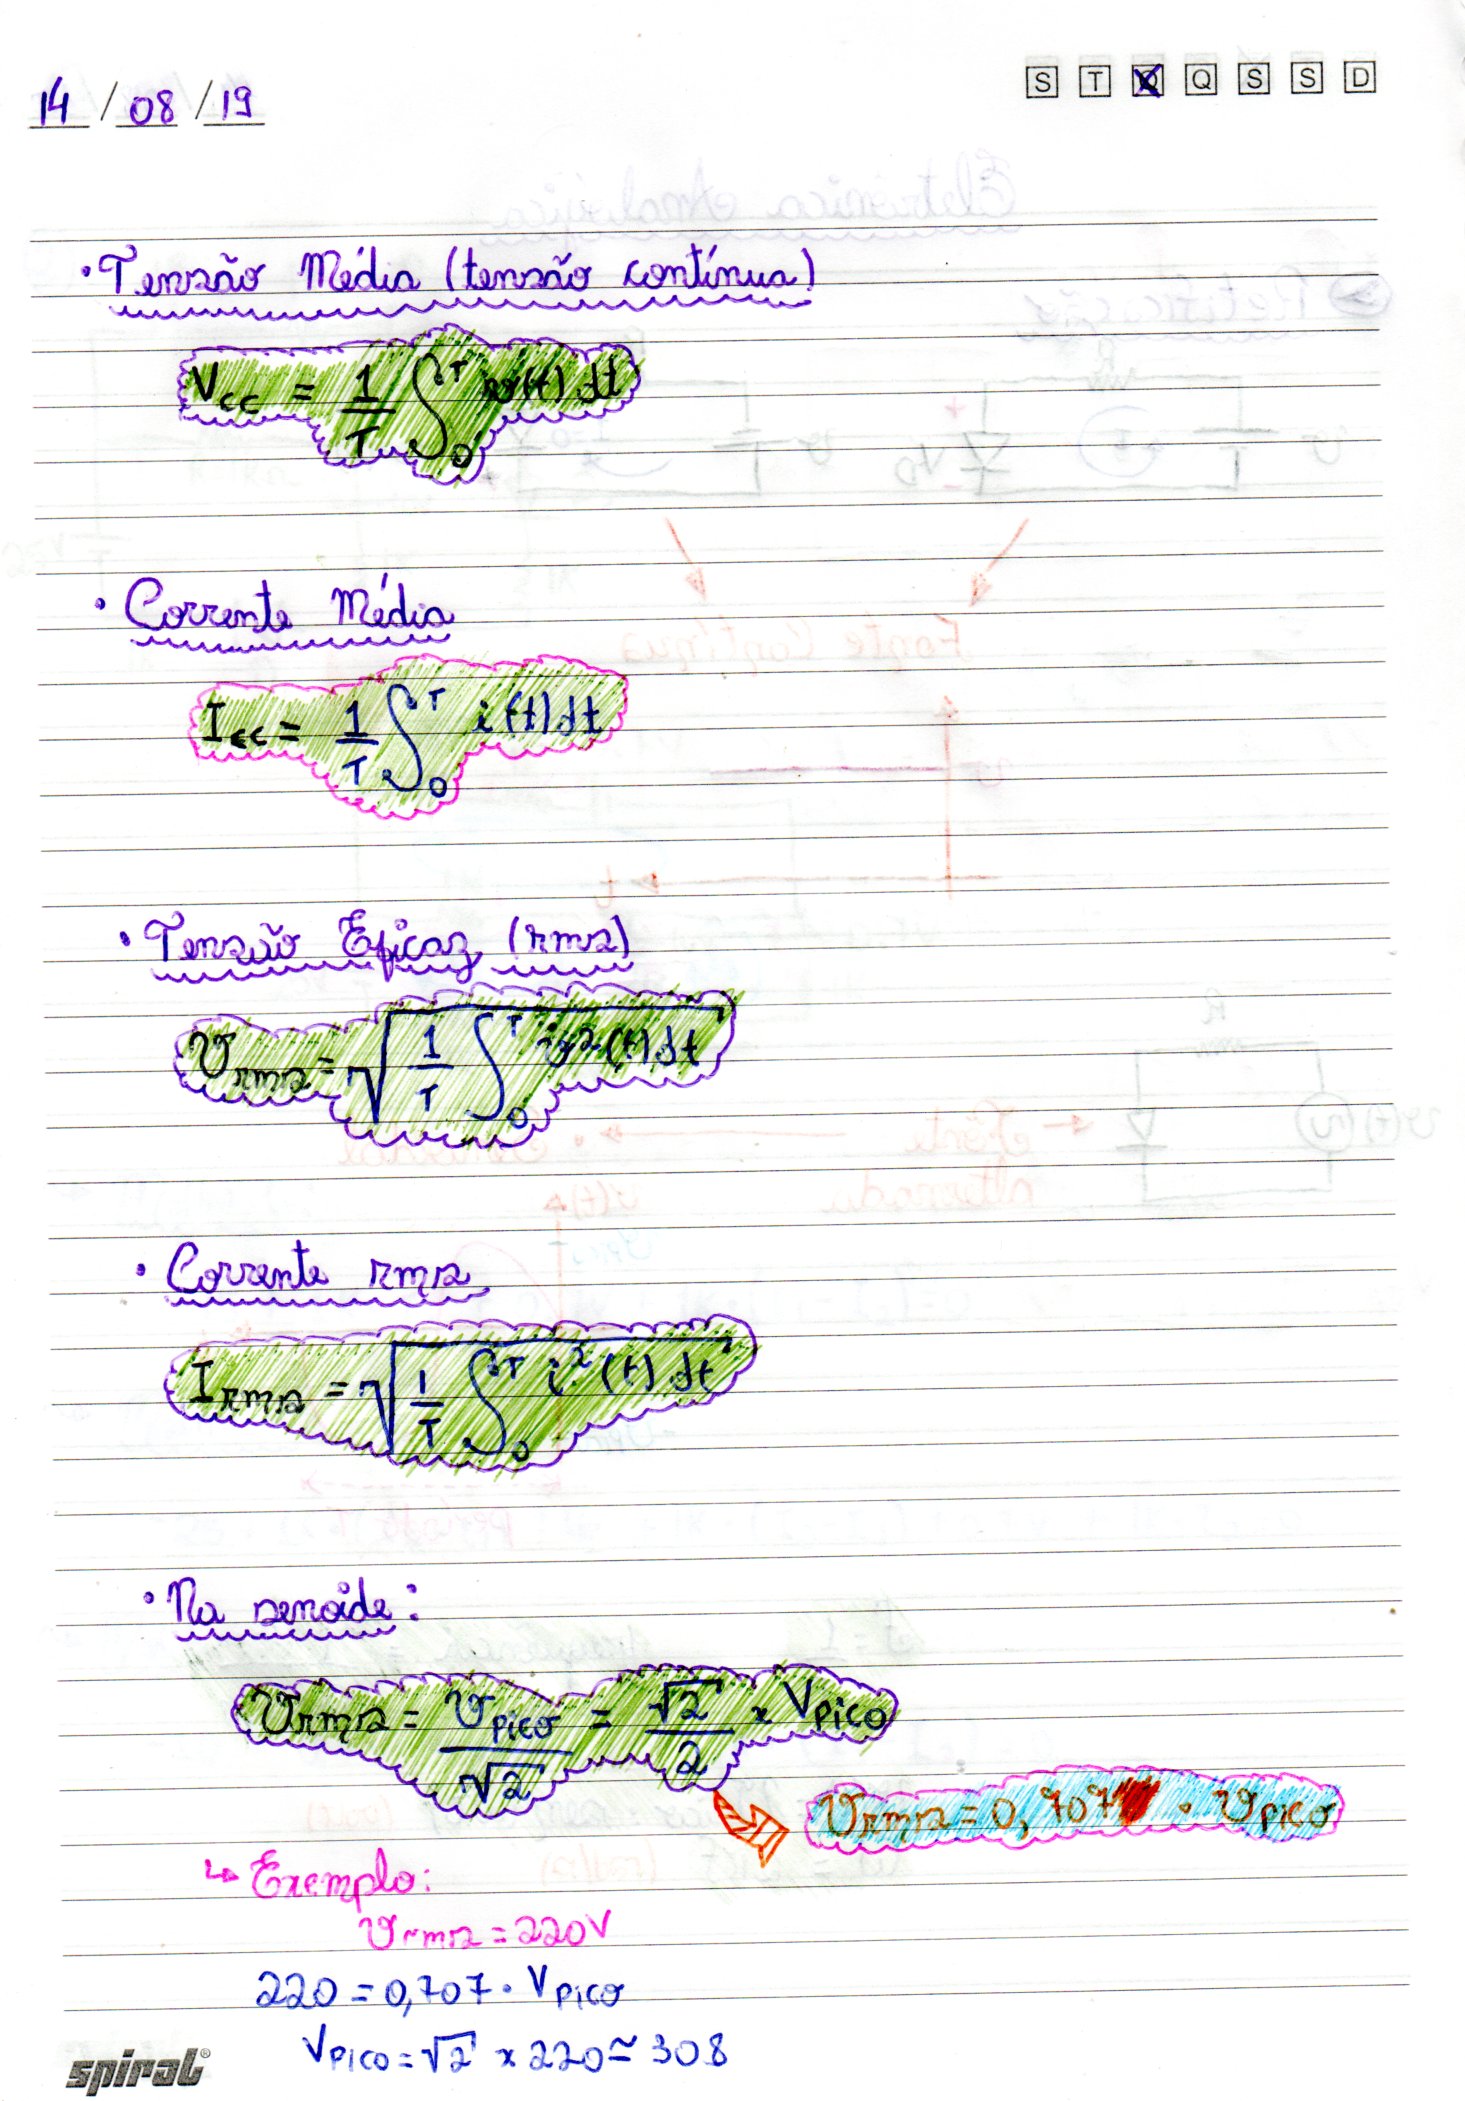 14 / 08 / 19
S T Q Q S S D
• Tensão Média (tensão contínua)
Vcc = 1/T ∫₀ᵀ v(t) dt
• Corrente Média
Icc = 1/T ∫₀ᵀ i(t) dt
• Tensão Eficaz (rms)
Vrms = √(1/T ∫₀ᵀ v²(t) dt)
• Corrente rms
Irms = √(1/T ∫₀ᵀ i²(t) dt)
• Na senoide:
Vrms = Vpico/√2 = √2/2 x Vpico
Vrms = 0,707 • Vpico
↳ Exemplo:
Vrms = 220V
220 = 0,707 • Vpico
Vpico = √2 x 220 ≃ 308
spiral®